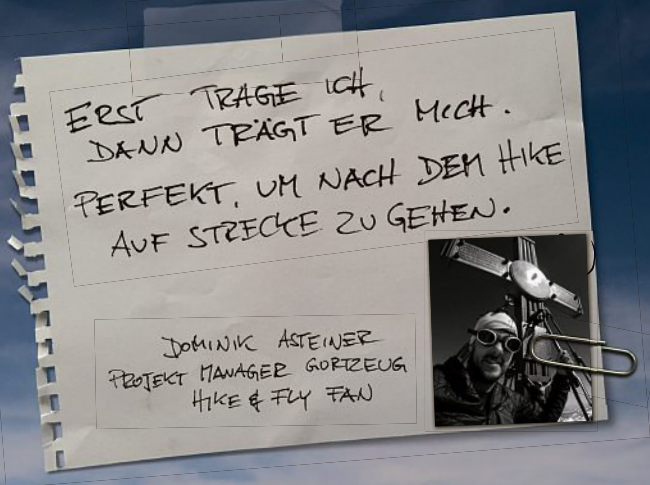 ERST TRAGE ICH,
DANN TRÄGT ER MICH.
PERFEKT, UM NACH DEM HIKE
AUF STRECKE ZU GEHEN.
DOMINIK ASTEINER
PROJEKT MANAGER GURTZEUG
HIKE & FLY FAN